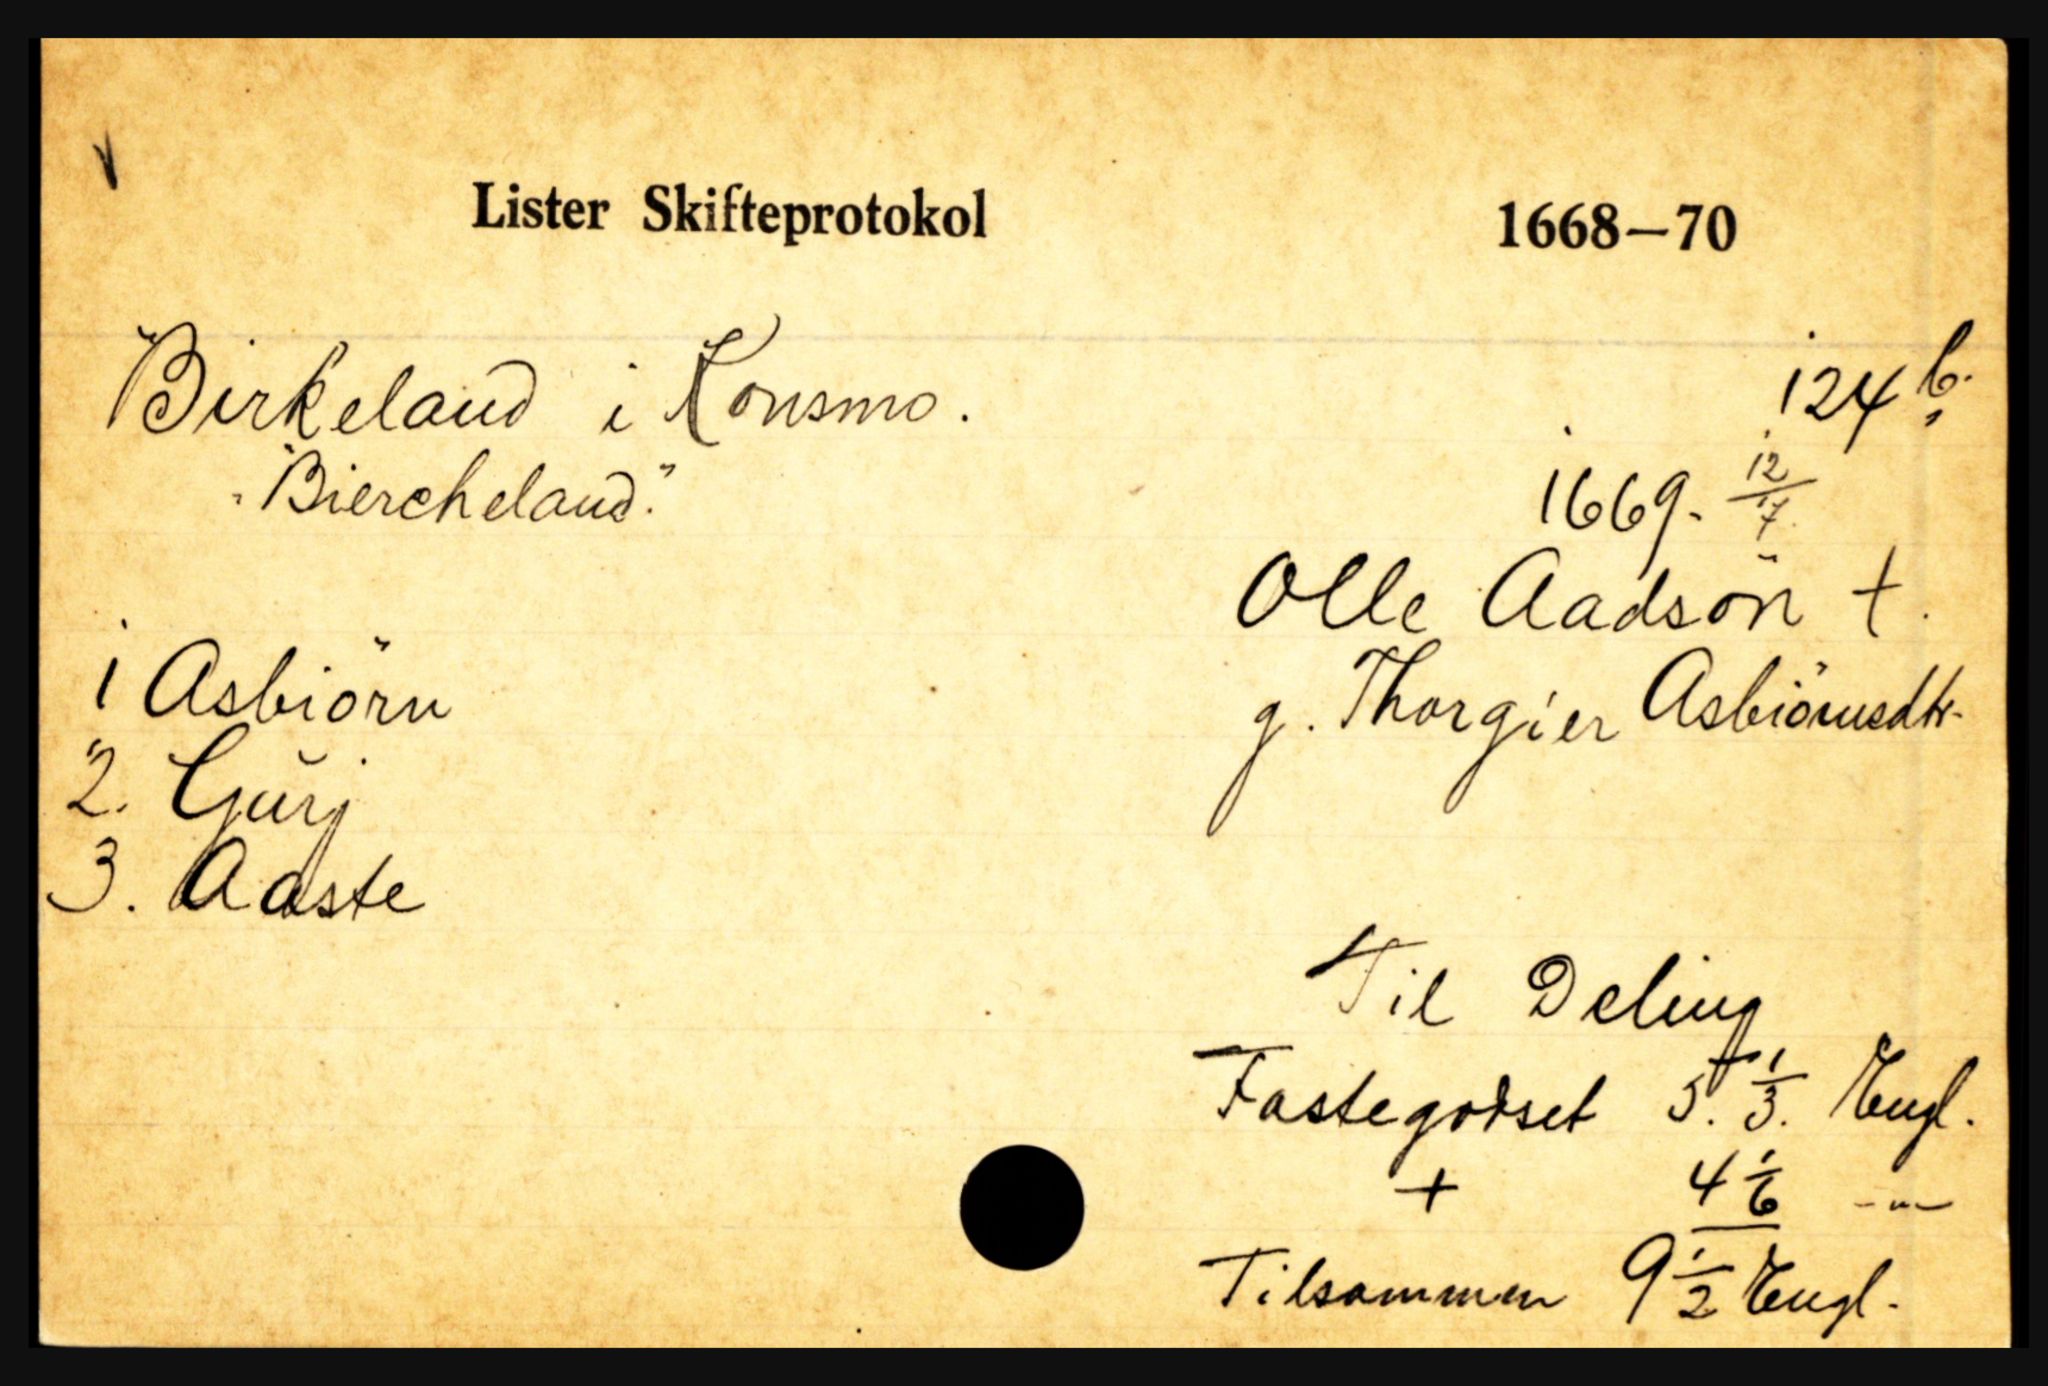 Lister Skifteprotokol 1668—70
Birkeland i Konsmo. 124 b.
"Biercheland."
1669. 12/7.
Olle Aadsön †.
g. Thorgier Asbiörnsdtr.
1 Asbiörn
2. Gurj
3. Aaste
Til Deling
Fastegodset 5. 1/3. Engl.
+ 4 1/6 -"-
Tilsammen 9 1/2 Engl.